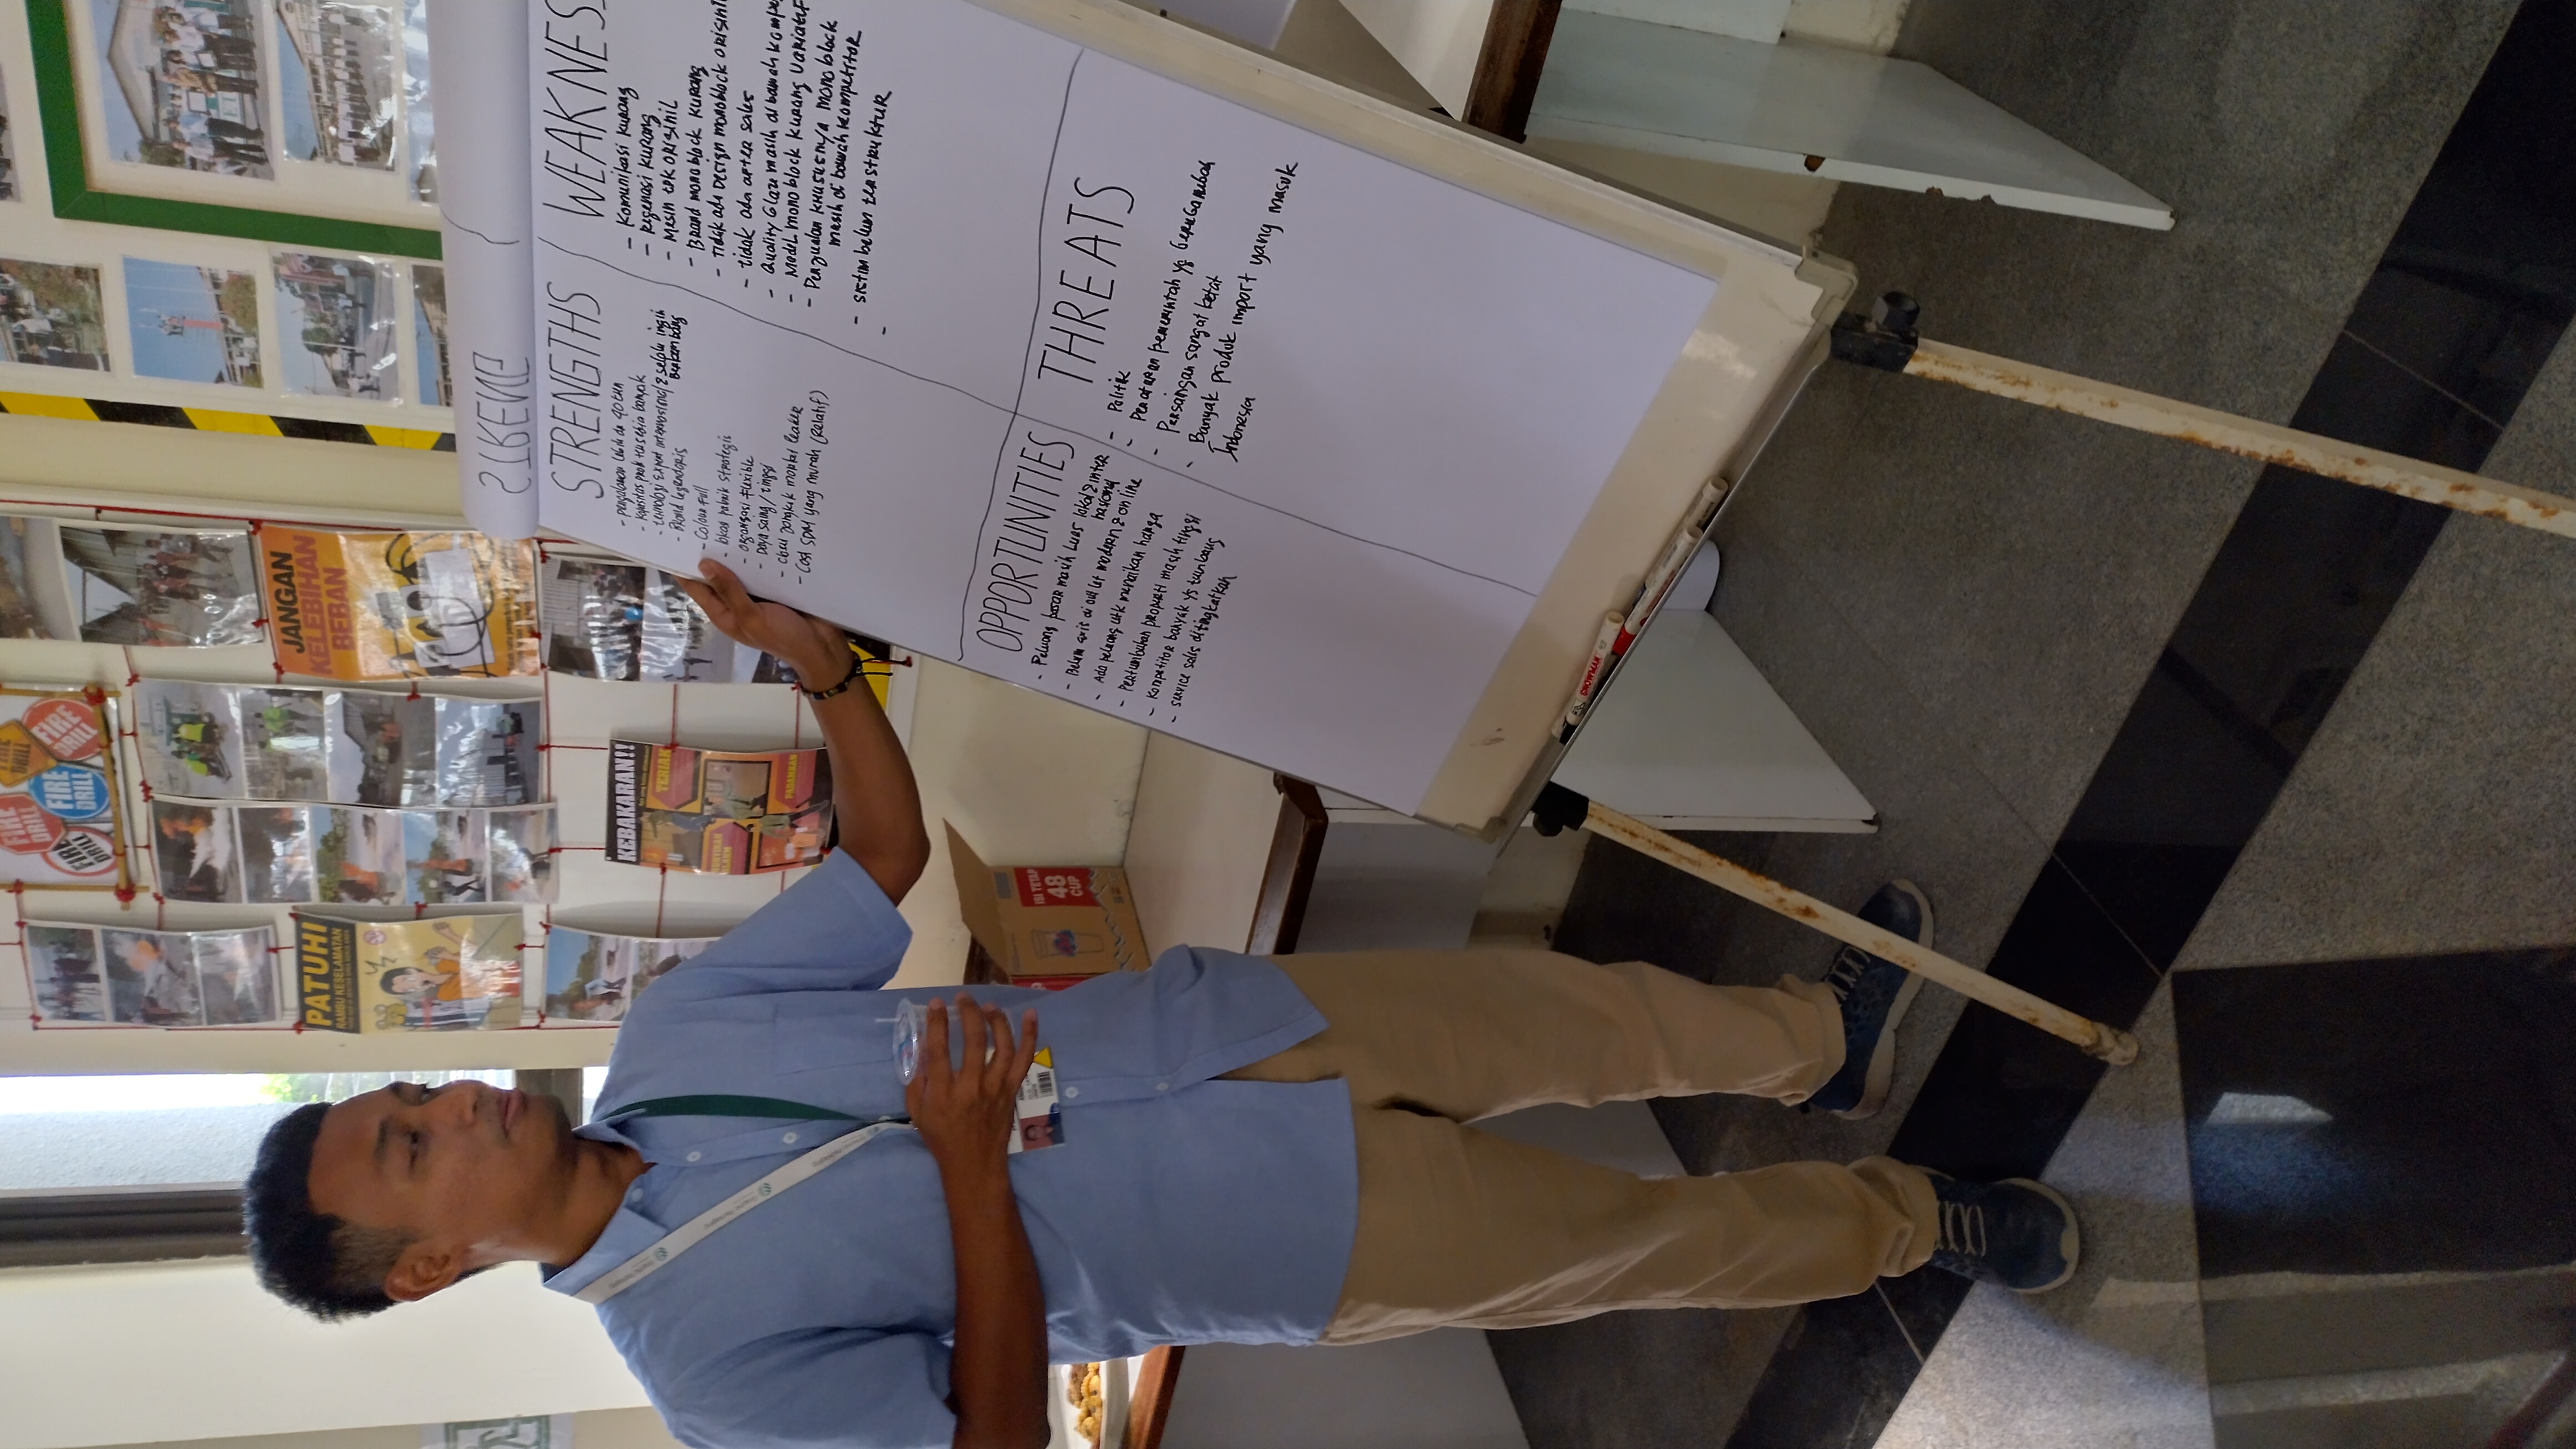 FIRE DRILL
FIRE DRILL
FIRE DRILL
FIRE DRILL
FIRE DRILL
PATUHI
RAMBU KESELAMATAN
JANGAN
KELEBIHAN
BEBAN
KEBAKARAN!!
TERIAK
PADAMKAN
ISI TETAP
48
CUP
STRENG
STRENGTHS
- pengalaman lebih dr 40 thn
- Kapasitas prod tersedia banyak
- teknologi Expert internasional & selalu ingin
Berkembang
- Brand legendaris
- Colour Full
- lokasi pabrik strategis
- organisasi flexible
- Daya saing / tinggi
- market leader
- Cost SDM yang murah (Relatif)
WEAKNES
- Komunikasi kurang
- Regenasi kurang
- Mesin tdk originil
- Brand monoblock kurang
- Tidak ada Design monoblock originil
- tidak ada after sales
- Quality Glaze masih di bawah kompe
- Model monoblock kurang variatif
- Penjualan khususnya monoblock
masih di bawah kompetitor
- sistim belum terstruktur
-
OPPORTUNITIES
- Peluang pasar masih luas lokal & inter
nasional
- Belum exis di outlet modern & online
- Ada peluang utk menaikan harga
- Pertumbuhan properti masih tinggi
- Kompetitor banyak yg tumbang
- service sales ditingkatkan
THREATS
- Politik
- Peraturan pemerintah yg berubah ubah
- Persaingan sangat ketat
- Banyak produk import yang masuk
Indonesia
SNOWMAN